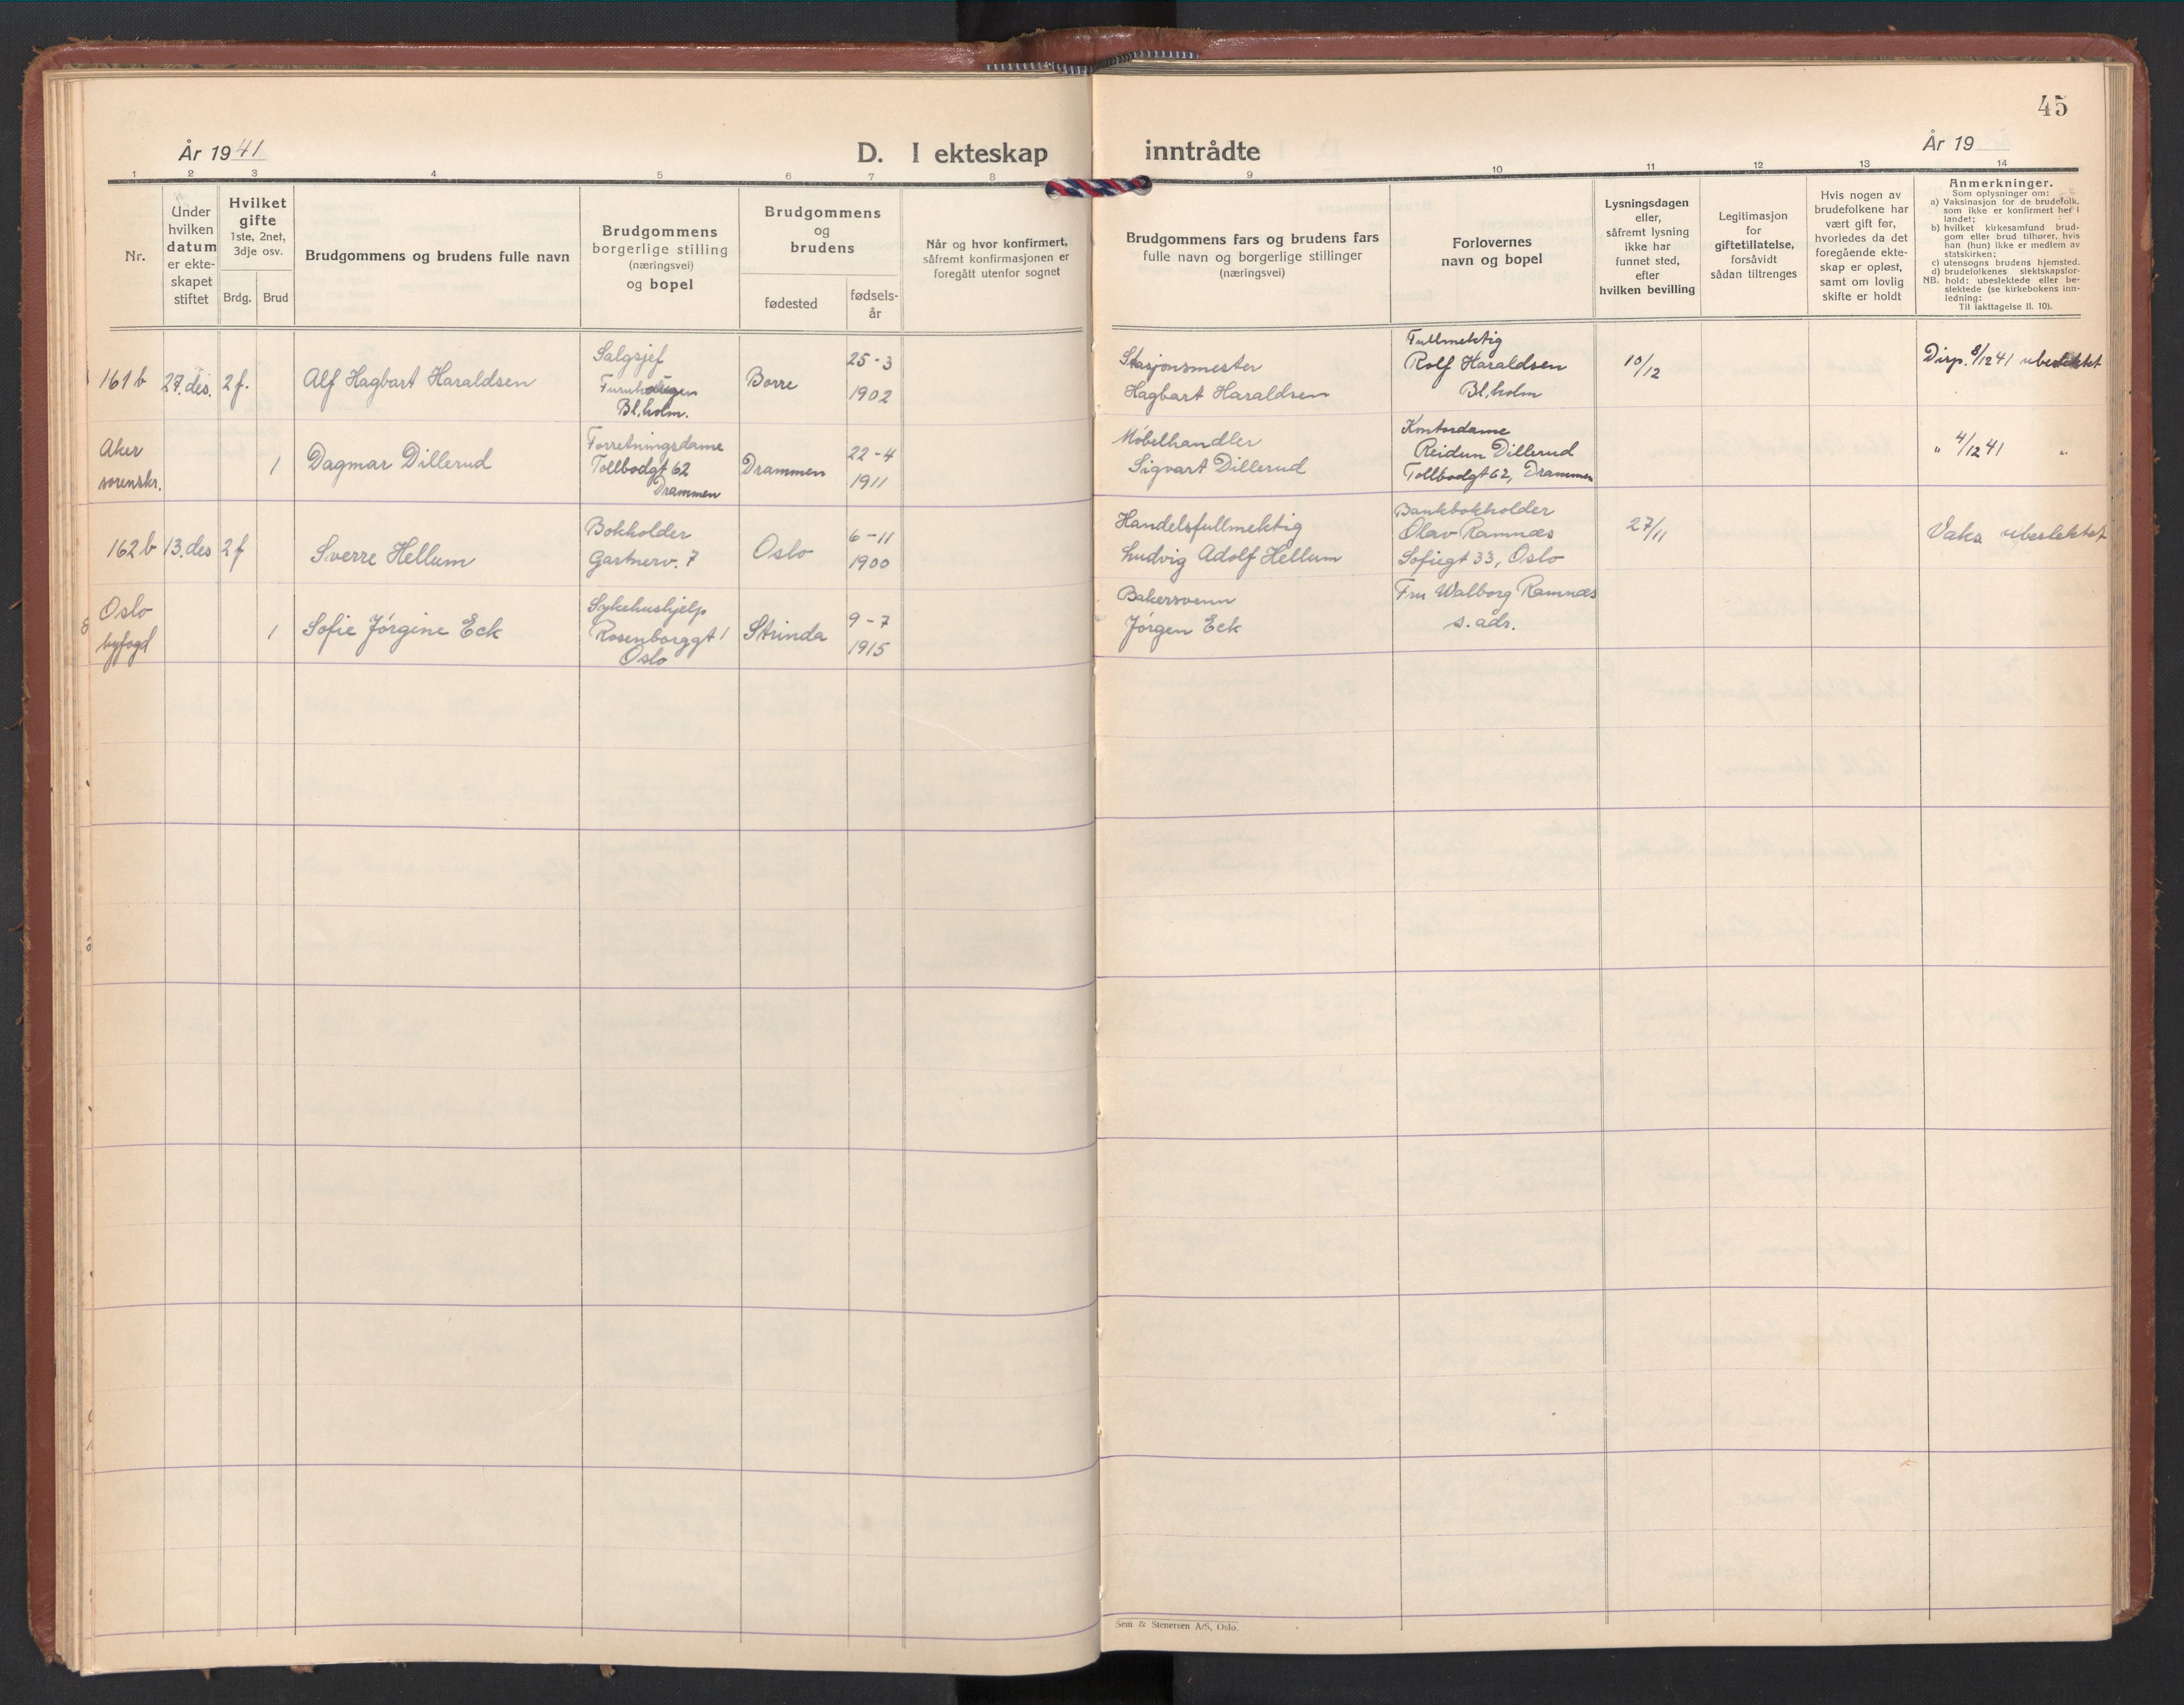 45
År 1941
D. I ekteskap inntrådte
År 19
1 2 3 4 5 6 7 8 9 10 11 12 13 14
Nr.
Under
hvilken
datum
er ekte-
skapet
stiftet
Hvilket
gifte
1ste, 2net,
3dje osv.
Brdg. Brud
Brudgommens og brudens fulle navn
Brudgommens
borgerlige stilling
(næringsvei)
og bopel
Brudgommens
og
brudens
fødested
fødsels-
år
Når og hvor konfirmert,
såfremt konfirmasjonen er
foregått utenfor sognet
Brudgommens fars og brudens fars
fulle navn og borgerlige stillinger
(næringsvei)
Forlovernes
navn og bopel
Lysningsdagen
eller,
såfremt lysning
ikke har
funnet sted,
efter
hvilken bevilling
Legitimasjon
for
giftetillatelse,
forsåvidt
sådan tiltrenges
Hvis nogen av
brudefolkene har
vært gift før,
hvorledes da det
foregående ekte-
skap er opløst,
samt om lovlig
skifte er holdt
Anmerkninger.
Som oplysninger om:
a) Vaksinasjon for de brudefolk,
som ikke er konfirmert her i
landet;
b) hvilket kirkesamfund brud-
gom eller brud tilhører, hvis
han (hun) ikke er medlem av
statskirken;
c) utensogns brudens hjemsted.
d) brudefolkenes slektskapsfor-
NB. hold: ubeslektede eller be-
slektede (se kirkebokens inn-
ledning:
Til iakttagelse II. 10).
161 b 27. des. 2 f. Alf Hagbart Haraldsen
Salgsjef
Bl.holm.
Borre
25-3
1902
Stasjonsmester
Hagbart Haraldsen
Fullmektig
Rolf Haraldsen
Bl.holm
10/12
Disp. 8/12 41 ubeslektet
Aker
sorenskr.
1 Dagmar Dillerud
Forretningsdame
Tollbodgt 62
Drammen
Drammen
22-4
1911
Møbelhandler
Sigvart Dillerud
Kontordame
Reidun Dillerud
Tollbodgt 62, Drammen
" 4/12 41 "
162 b 13. des 2 f Sverre Hellum
Bokholder
Gartnerv. 7
Oslo
6-11
1900
Handelsfullmektig
Ludvig Adolf Hellum
Bankbokholder
Olav Ramnæs
Sofiegt 33, Oslo
27/11
Vaks ubeslektet
Oslo
byfogd
1 Sofie Jørgine Eck
Sykehushjelp
Rosenborggt 1
Oslo
Strinda
9-7
1915
Bakersvenn
Jørgen Eck
Fru Walborg Ramnæs
s. adr.
Sem & Stenersen A/S, Oslo.